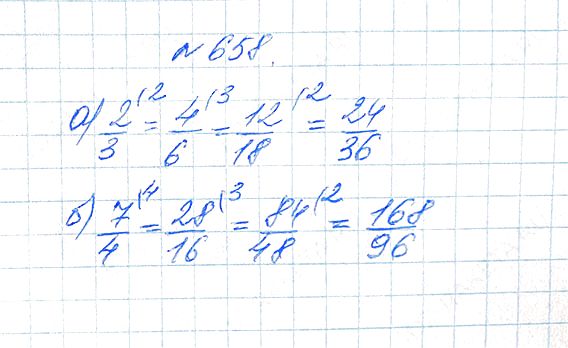 №658.
а) 2/3 (2 = 4/6 (3 = 12/18 (2 = 24/36
б) 7/4 (4 = 28/16 (3 = 84/48 (2 = 168/96